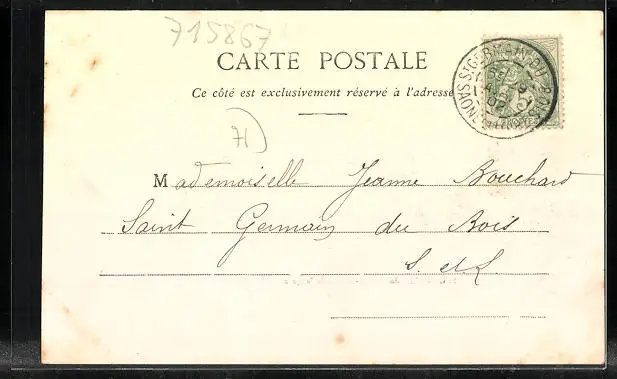 715867
CARTE POSTALE
Ce côté est exclusivement réservé à l'adresse
71
Mademoiselle Jeanne Bouchard
Saint Germain du Bois
S. et L.
ST GERMAIN-DU-BOIS